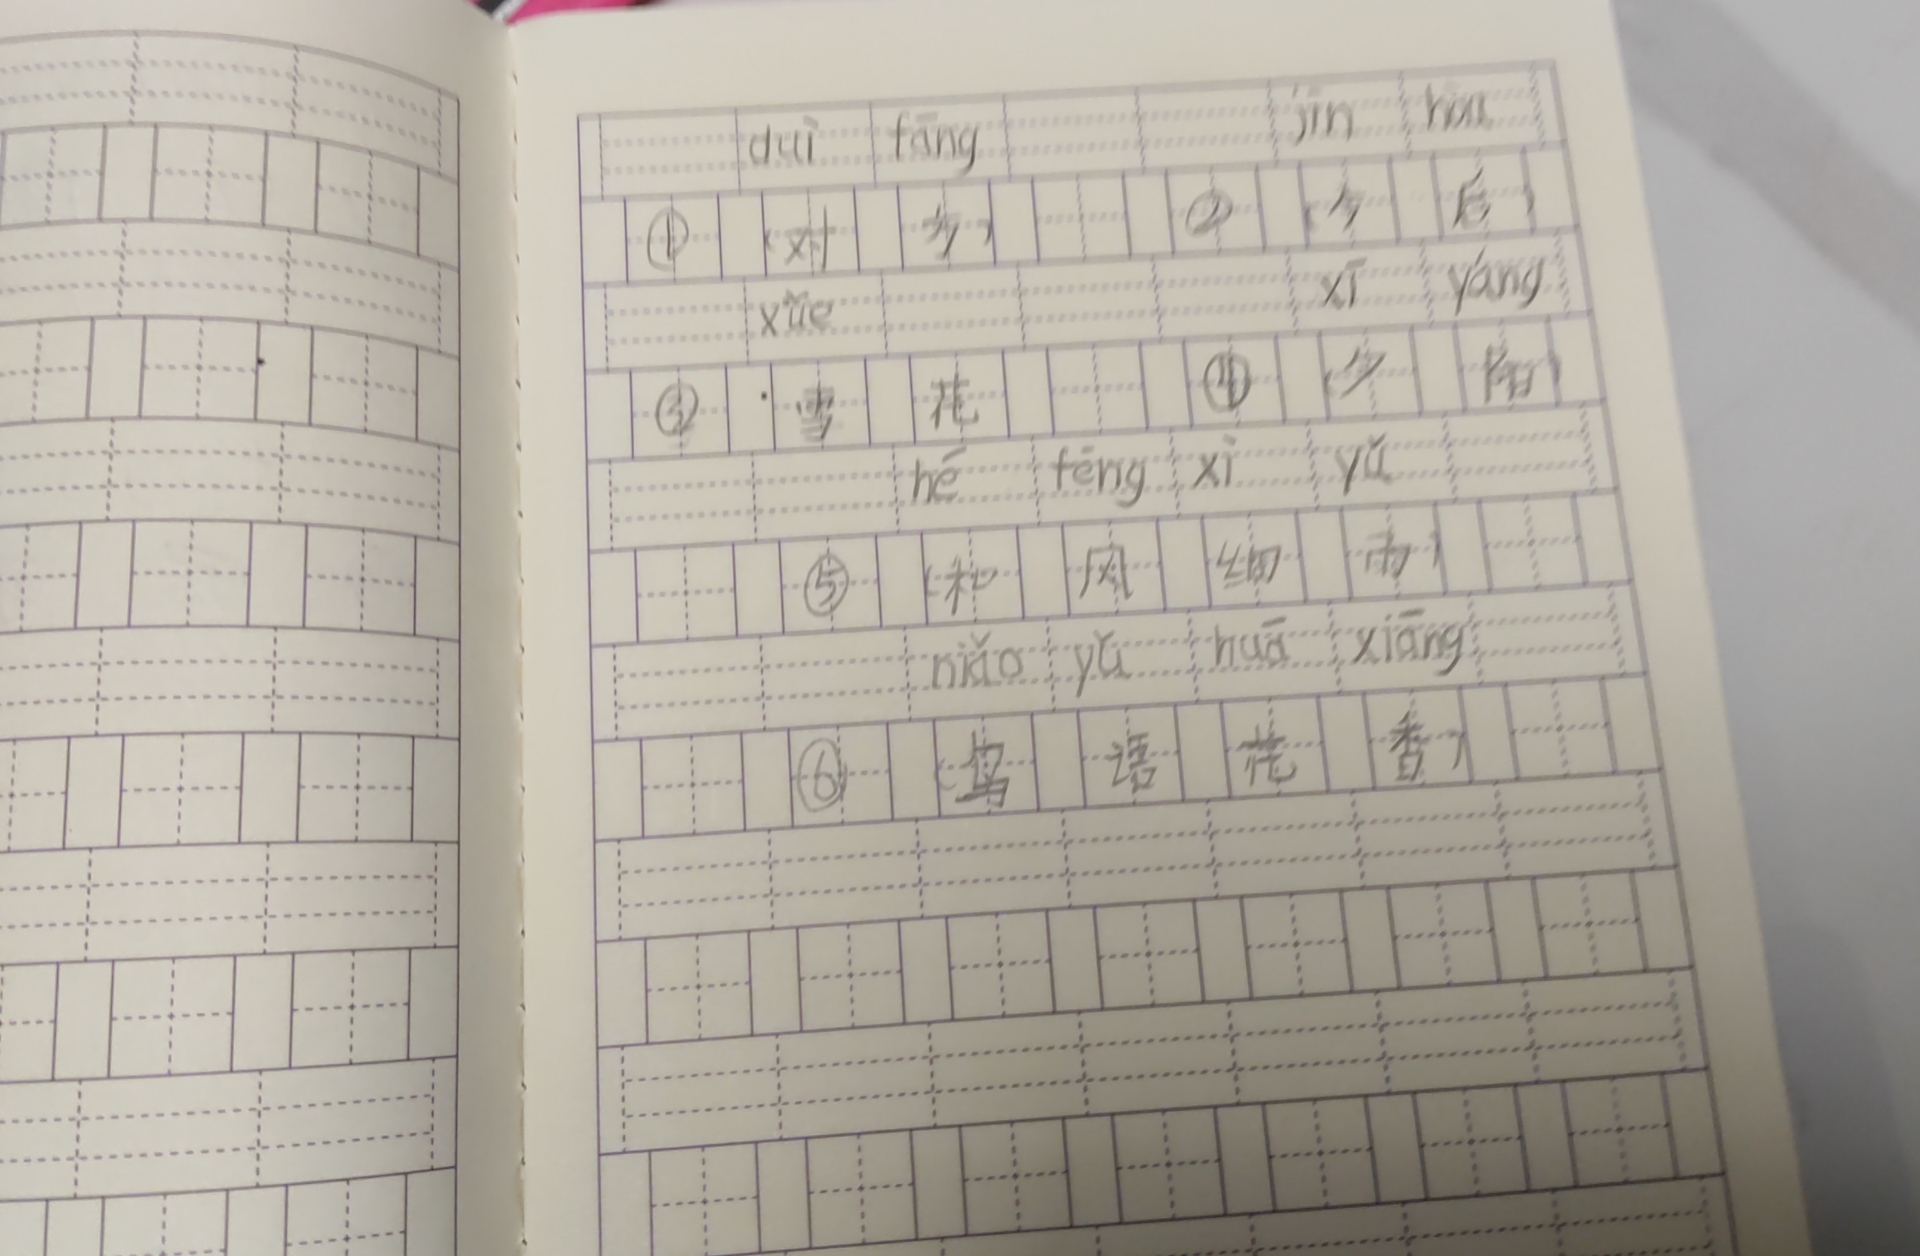 duì fāng jīn hòu
① (对方) ② (今后)
xuě xī yáng
③ 雪花 ④ (夕阳)
hé fēng xì yǔ
⑤ (和风细雨)
niǎo yǔ huā xiāng
⑥ (鸟语花香)